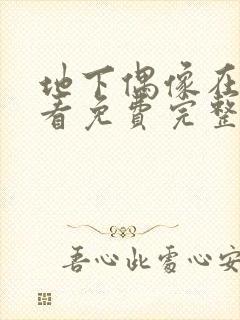 地下偶像在
看免费完整
吾心此处心安